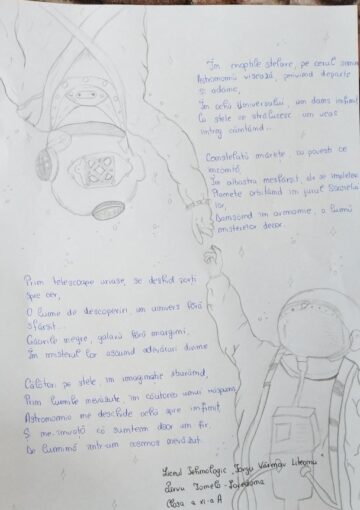 În nopțile stelare, pe cerul senin
Astronomii visează, privind departe
și adânc,
În ochii Universului, un dans infinit
Cu stele ce strălucesc un veac
întreg cântând...
Constelații mărețe, cu povești ce
încântă,
În albastru nesfârșit, de se
Planete orbitând în jurul Soarelui
lor,
Dansând în armonie, a lumii
misterelor decor.
Prin telescoape uriașe, se deschid porți
spre cer,
O lume de descoperiri, un univers fără
sfârșit...
Găurile negre, galaxii fără margini,
În misterul lor ascund adevăruri divine
Călători pe stele, în imaginație zburând,
Prin lumile nevăzute, în căutarea unui răspuns,
Astronomia ne deschide ochii spre infinit,
Și ne-nvață că suntem doar un fir,
De lumină într-un cosmos nevăzut.
Liceul Tehnologic
Clasa a XI-a A